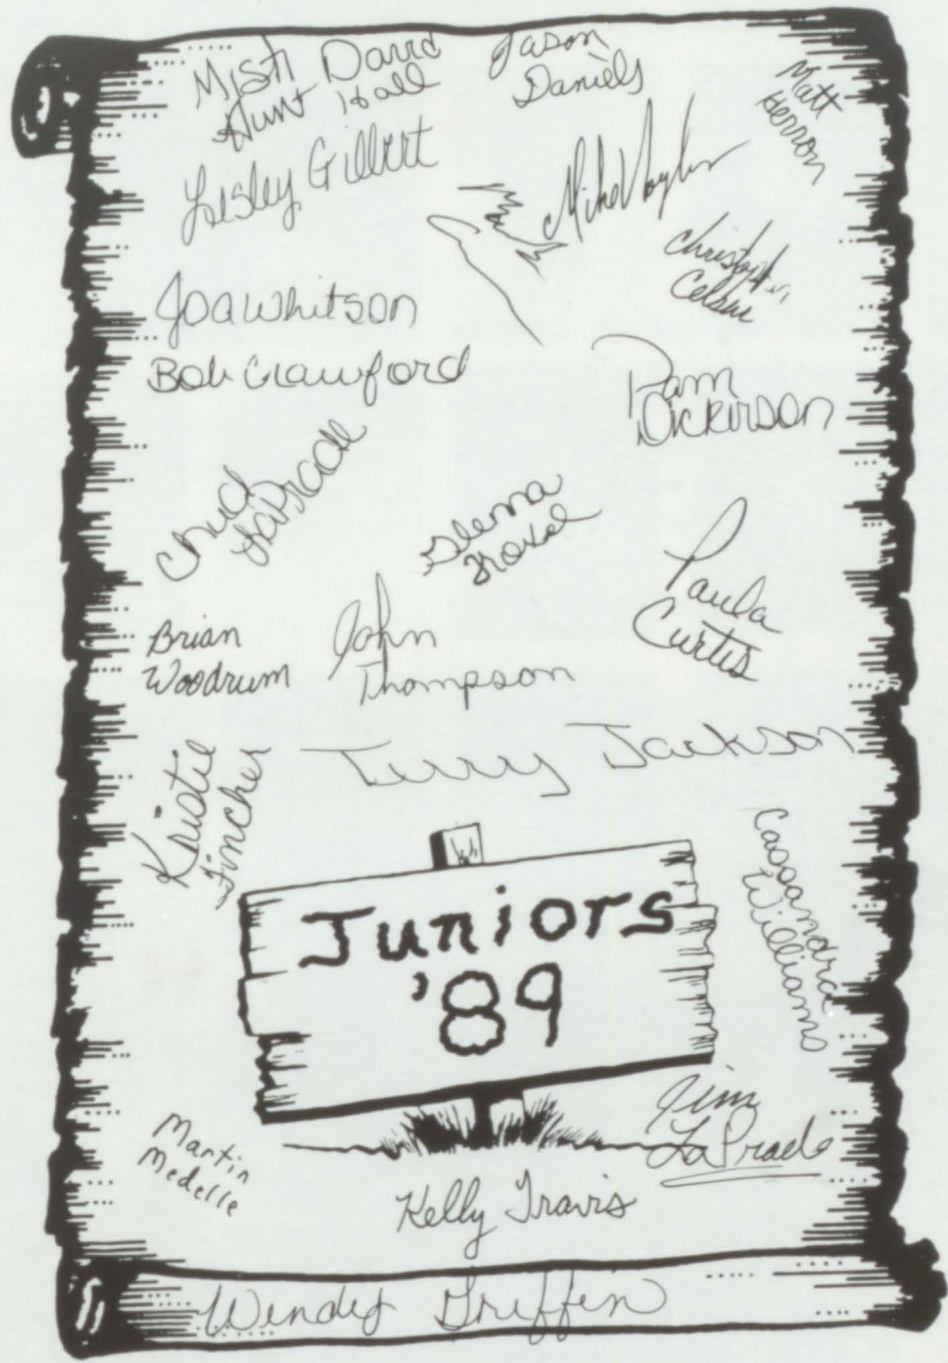 Misti
Hunt
David
Hall
Jason
Daniels
Matt
Herron
Lesley Gilbert
Mike
Christopher
Joa Whitson
Bob Crawford
Pam
Dickirson
Chuck
LaPrade
Glenna
Troxel
Paula
Curtis
Brian
Woodrum
John
Thompson
Terry Jackson
Kristie
Fincher
Cassandra
Williams
Juniors
'89
Jim
LaPrade
Martin
Medelle
Kelly Travis
Wendy Griffin